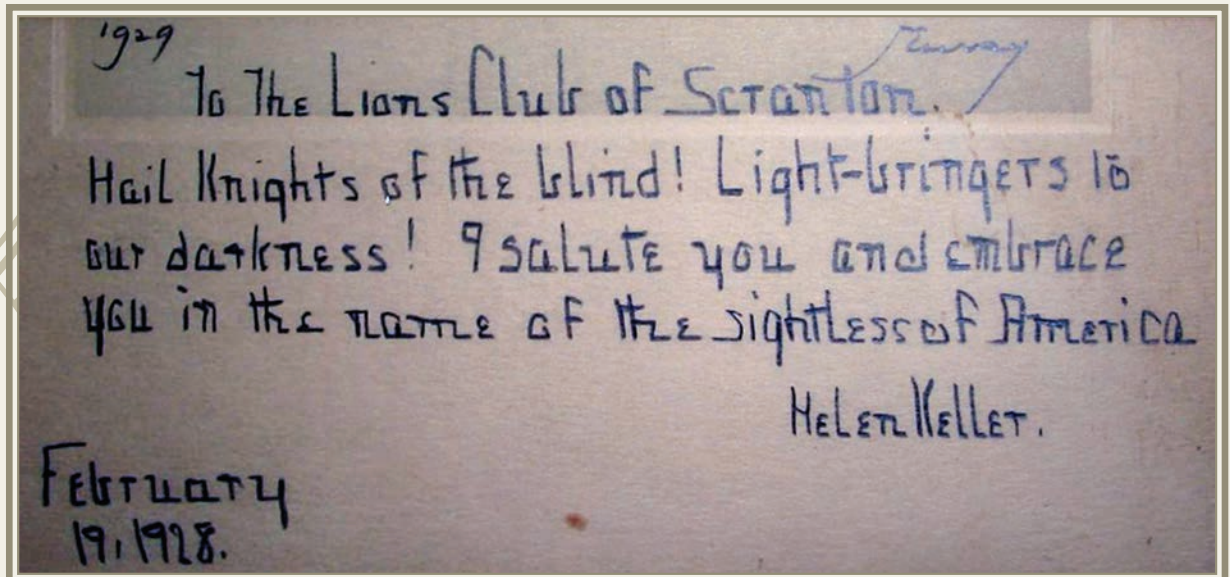 1929
To The Lions Club of Scranton.
Hail Knights of the blind! Light-bringers to
our darkness! I salute you and embrace
you in the name of the sightless of America
Helen Keller.
February
19, 1928.